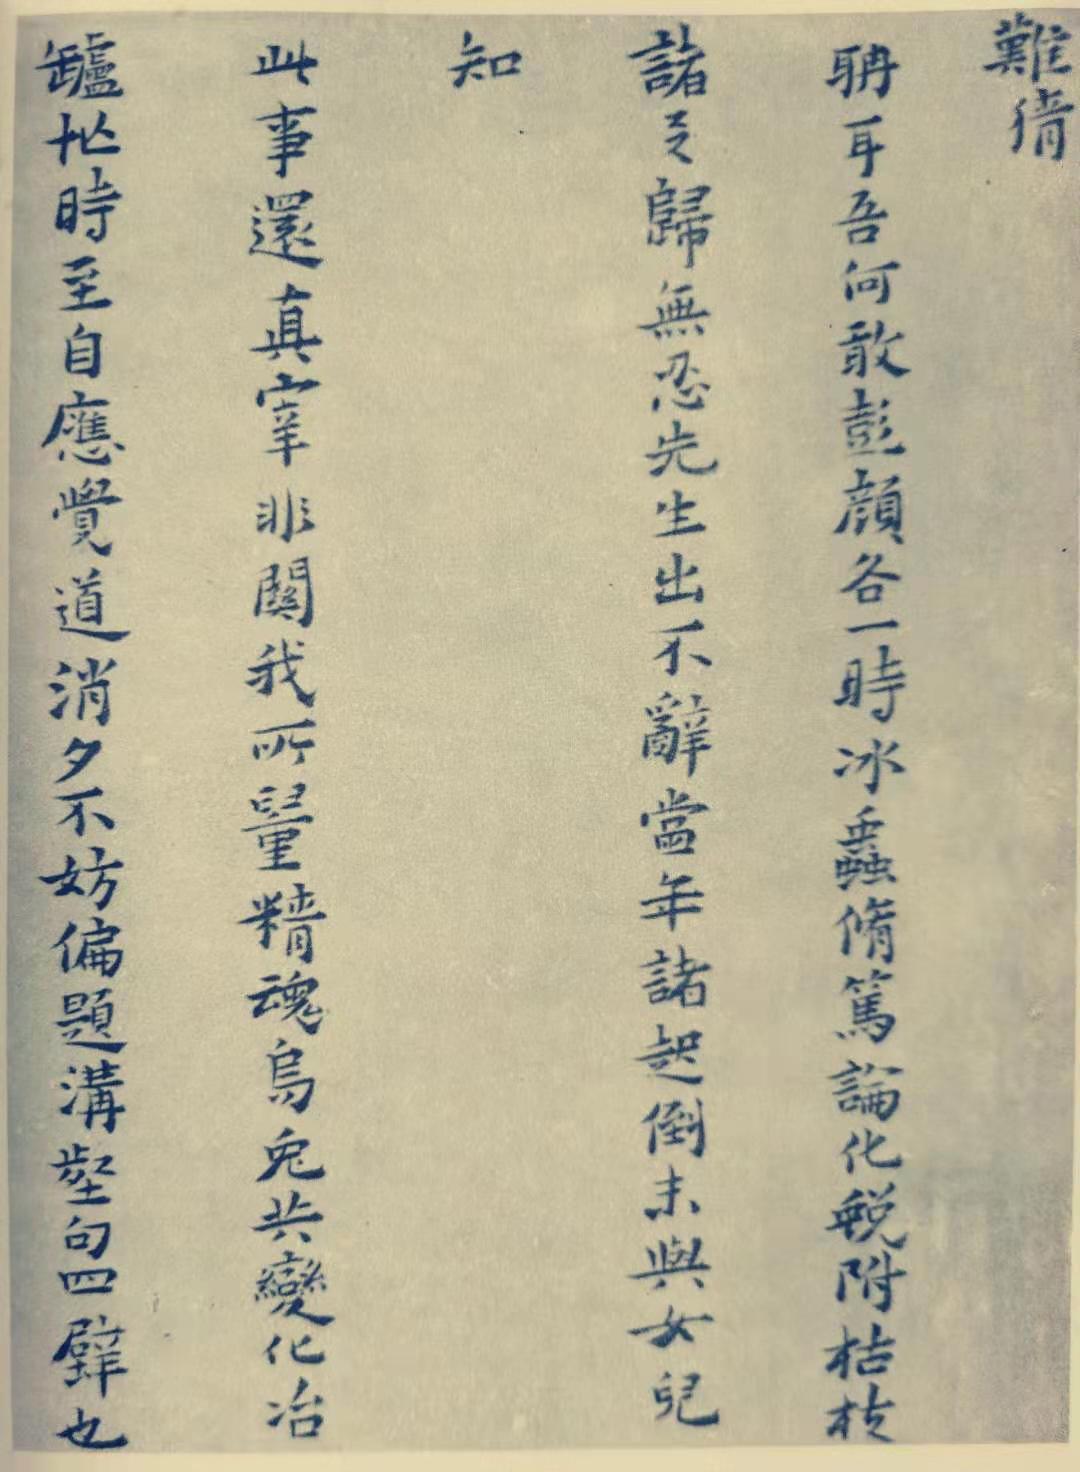 難倩
聃耳吾何敢彭顏各一時冰蠶脩篤論化蛻附枯枝
諸歸無忍先生出不辭當年諸起倒未與女兒
知
此事還真宰非關我所量精魂烏兔共變化冶
罏忙時至自應覺道消夕不妨偏題溝壑句四壁也